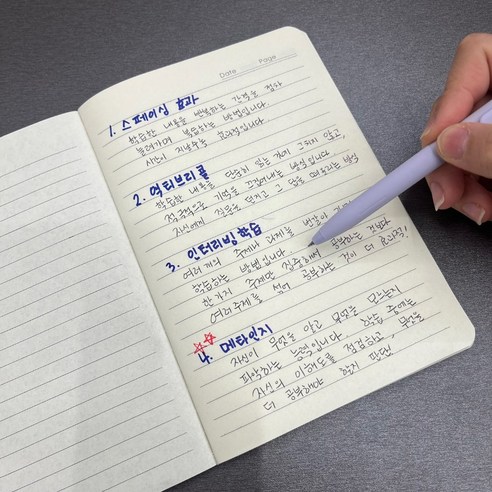 Date Page
1. 스페이싱 효과
학습한 내용을 반복하는 간격을 점차
늘려가며 복습하는 방법입니다.
시간이 지날수록 효과적입니다.
2. 액티브리콜
학습한 내용을 단순히 읽는 것에 그치지 않고,
적극적으로 기억을 끄집어내는 방식입니다.
자신에게 질문을 던지고 그 답을 떠올리는 방식
3. 인터리빙 학습
여러 개의 주제나 과제를 번갈아
학습하는 방법입니다.
한가지 주제만 집중해서 공부하는 것보다
여러주제를 섞어 공부하는 것이 더 효과적!
4. 메타인지
자신이 무엇을 알고 무엇을 모르는지
파악하는 능력입니다. 학습 중에는
자신의 이해도를 점검하고, 무엇을
더 공부해야 할지 판단.